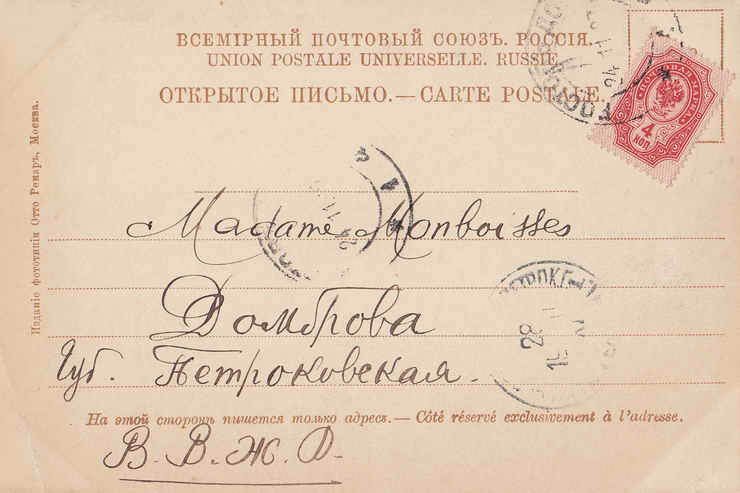 ВСЕМІРНЫЙ ПОЧТОВЫЙ СОЮЗЪ. РОССІЯ.
UNION POSTALE UNIVERSELLE. RUSSIE
ОТКРЫТОЕ ПИСЬМО. — CARTE POSTALE.
ПОЧТОВАЯ МАРКА
4
КОП
Madame Monboisses
Домброва
Губ. Петроковская.
На этой сторонѣ пишется только адресъ. — Côté réservé exclusivement à l'adresse.
В. В. Ж. Д.
Изданіе фототипіи Отто Ренаръ, Москва.
28